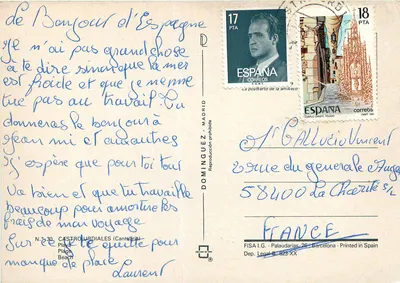 Le Bonjour d'Espagne
Je n'ai pas grand chose
à te dire sinon que la mer
est froide et que je ne me
tue pas au travail. Tu
donneras le bonjour à
Jean mi et aux autres
J'espère que pour toi tout
Va bien et que tu travailles
beaucoup pour amortir les
frais de mon voyage
Sur ce je te quitte pour
manque de place
Laurent
N.º 30 CASTRO URDIALES (Cantabria)
Playa
Plage
Beach
DOMINGUEZ - MADRID
Reproducción prohibida
17
PTA
ESPAÑA
CORREOS
18
PTA
ESPAÑA
correos
Mr GALLUCIO Vincent
rue du général
58400 La Charité s/L
FRANCE
FISA I.G. - Palaudarias, 26 - Barcelona - Printed in Spain
Dep. Legal B. -XX